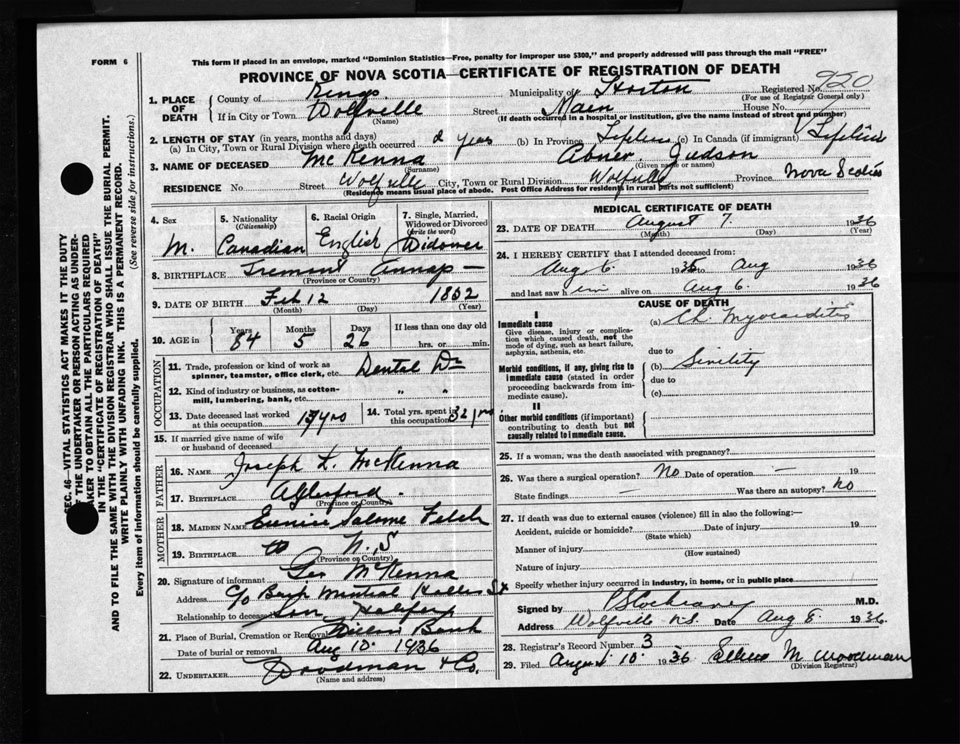 FORM 6
This form if placed in an envelope, marked "Dominion Statistics—Free, penalty for improper use $300," and properly addressed will pass through the mail "FREE"
PROVINCE OF NOVA SCOTIA—CERTIFICATE OF REGISTRATION OF DEATH
920
1. PLACE OF DEATH { County of Kings Municipality of Horton Registered No.
(For use of Registrar General only)
If in City or Town Wolfville Street Main House No.
(Name) (If death occurred in a hospital or institution, give the name instead of street and number)
2. LENGTH OF STAY (in years, months and days)
(a) In City, Town or Rural Division where death occurred 2 years (b) In Province Lifetime (c) In Canada (if immigrant) Lifetime
3. NAME OF DECEASED McKenna Abner Judson
(Surname) (Given name or names)
RESIDENCE No. Street Wolfville City, Town or Rural Division Wolfville Province Nova Scotia
(Residence means usual place of abode. Post Office Address for residents in rural parts not sufficient)
4. Sex M.
5. Nationality (Citizenship) Canadian
6. Racial Origin English
7. Single, Married, Widowed or Divorced (write the word) Widower
8. BIRTHPLACE Tremont Annap—
(Province or Country)
9. DATE OF BIRTH Feb 12 1852
(Month) (Day) (Year)
10. AGE in Years 84 Months 5 Days 26 If less than one day old
hrs. or min.
OCCUPATION
11. Trade, profession or kind of work as spinner, teamster, office clerk, etc. Dental Dr
12. Kind of industry or business, as cotton-mill, lumbering, bank, etc. " "
13. Date deceased last worked at this occupation
14. Total yrs. spent in this occupation 32 yrs
15. If married give name of wife or husband of deceased
FATHER
16. NAME Joseph L. McKenna
17. BIRTHPLACE Aylesford.
(Province or Country)
MOTHER
18. MAIDEN NAME Eunice Salome Felch
19. BIRTHPLACE N.S
(Province or Country)
20. Signature of informant Geo McKenna
Address c/o Benj Mutual Hollis St
Relationship to deceased Son Halifax
21. Place of Burial, Cremation or Removal Bank
Date of burial or removal Aug 10 1936
22. UNDERTAKER Woodman & Co.
(Name and address)
MEDICAL CERTIFICATE OF DEATH
23. DATE OF DEATH August 7. 1936
(Month) (Day) (Year)
24. I HEREBY CERTIFY that I attended deceased from:
Aug 6. 1936 to Aug 1936
and last saw him alive on Aug 6. 1936
CAUSE OF DEATH
I
Immediate cause
Give disease, injury or complication which caused death, not the mode of dying, such as heart failure, asphyxia, asthenia, etc.
(a) Ch. Myocarditis
due to
Morbid conditions, if any, giving rise to immediate cause (stated in order proceeding backwards from immediate cause).
(b) Sinility
due to
(c)
II
Other morbid conditions (if important) contributing to death but not causally related to immediate cause.
25. If a woman, was the death associated with pregnancy?
26. Was there a surgical operation? No Date of operation — 19
State findings — Was there an autopsy? No
27. If death was due to external causes (violence) fill in also the following:—
Accident, suicide or homicide? Date of injury 19
(State which)
Manner of injury
(How sustained)
Nature of injury
Specify whether injury occurred in industry, in home, or in public place
Signed by P S Cochrane M.D.
Address Wolfville N.S. Date Aug 8. 1936
28. Registrar's Record Number 3
29. Filed August 10. 1936 M Woodman
(Division Registrar)
SEC. 46—VITAL STATISTICS ACT MAKES IT THE DUTY
OF THE UNDERTAKER OR PERSON ACTING AS UNDERTAKER TO OBTAIN ALL THE PARTICULARS REQUIRED
IN THE "CERTIFICATE OF REGISTRATION OF DEATH"
AND TO FILE THE SAME WITH THE DIVISION REGISTRAR WHO SHALL ISSUE THE BURIAL PERMIT.
WRITE PLAINLY WITH UNFADING INK. THIS IS A PERMANENT RECORD.
Every item of information should be carefully supplied. (See reverse side for instructions.)